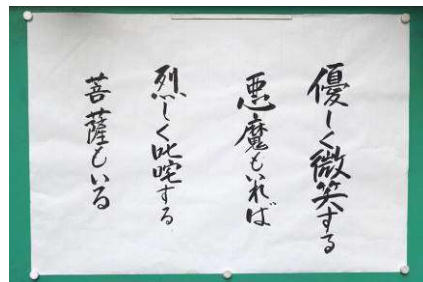 優しく微笑する
悪魔もいれば
烈しく叱咤する
菩薩もいる